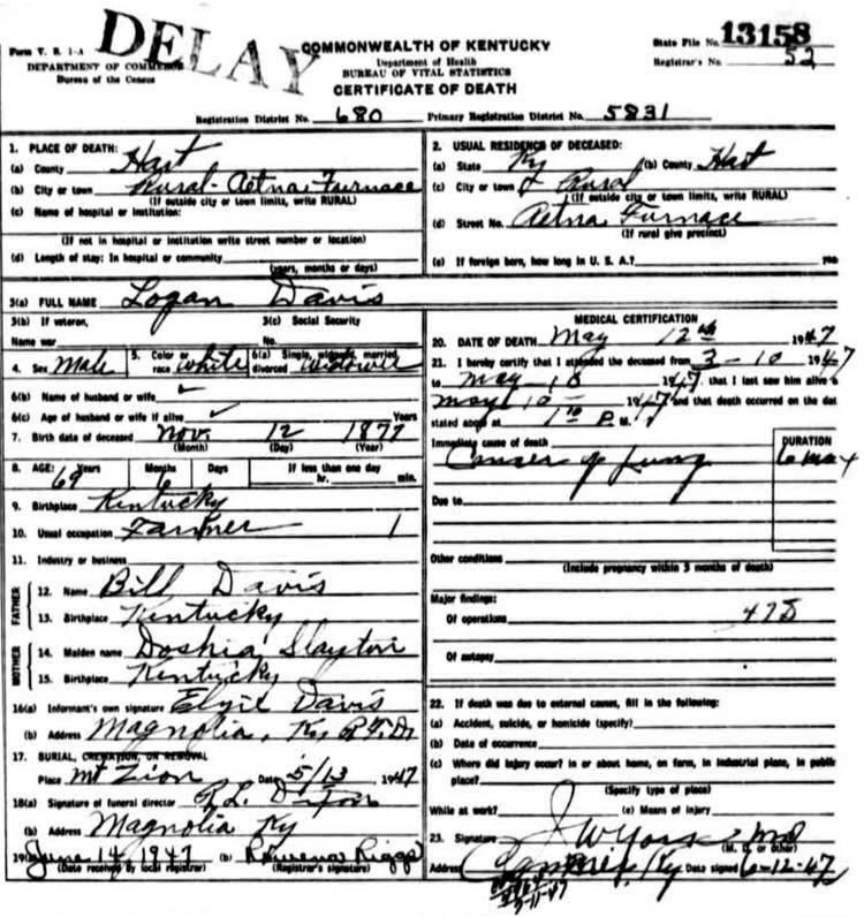 DELAY
Form V. S. 1-A
DEPARTMENT OF COMMERCE
Bureau of the Census
COMMONWEALTH OF KENTUCKY
Department of Health
BUREAU OF VITAL STATISTICS
CERTIFICATE OF DEATH
State File No. 13158
Registrar's No. 52
Registration District No. 680 Primary Registration District No. 5831
1. PLACE OF DEATH:
(a) County Hart
(b) City or town Rural - Aetna Furnace
(If outside city or town limits, write RURAL)
(c) Name of hospital or institution:
(If not in hospital or institution write street number or location)
(d) Length of stay: In hospital or community
(years, months or days)
2. USUAL RESIDENCE OF DECEASED:
(a) State Ky (b) County Hart
(c) City or town Rural
(If outside city or town limits, write RURAL)
(d) Street No. Aetna Furnace
(If rural give precinct)
(e) If foreign born, how long in U. S. A.?
3(a) FULL NAME Logan Davis
3(b) If veteran, 3(c) Social Security
Name war No.
4. Sex Male 5. Color or race White 6(a) Single, widowed, married, divorced Widower
6(b) Name of husband or wife ✓
6(c) Age of husband or wife if alive ✓ Years
7. Birth date of deceased Nov. 12 1877
(Month) (Day) (Year)
8. AGE: Years Months Days If less than one day
69 6 hr. min.
9. Birthplace Kentucky
10. Usual occupation Farmer 1
11. Industry or business
FATHER
12. Name Bill Davis
13. Birthplace Kentucky
MOTHER
14. Maiden name Doshia Slayton
15. Birthplace Kentucky
16(a) Informant's own signature Davis
(b) Address Magnolia, Ky R.F.D.
17. BURIAL, CREMATION, OR REMOVAL
Place Mt Zion Date 5/13 1947
18(a) Signature of funeral director R.L.
(b) Address Magnolia Ky
19(a) June 14, 1947 (b) Riggs
(Date received by local registrar) (Registrar's signature)
MEDICAL CERTIFICATION
20. DATE OF DEATH May 12th 1947
21. I hereby certify that I attended the deceased from 3-10 1947
to May 10 1947, that I last saw him alive
May 10 - 1947 and that death occurred on the dat
stated above at P. M.
Immediate cause of death DURATION
Cancer of Lung 6 mo
Due to
Other conditions
(Include pregnancy within 3 months of death)
Major findings:
Of operations
Of autopsy
22. If death was due to external causes, fill in the following:
(a) Accident, suicide, or homicide (specify)
(b) Date of occurrence
(c) Where did injury occur? in or about home, on farm, in industrial place, in public
place?
(Specify type of place)
While at work? (e) Means of injury
23. Signature MD
(M. D. or other)
Address Ky Date signed 6-12-47
7-11-47